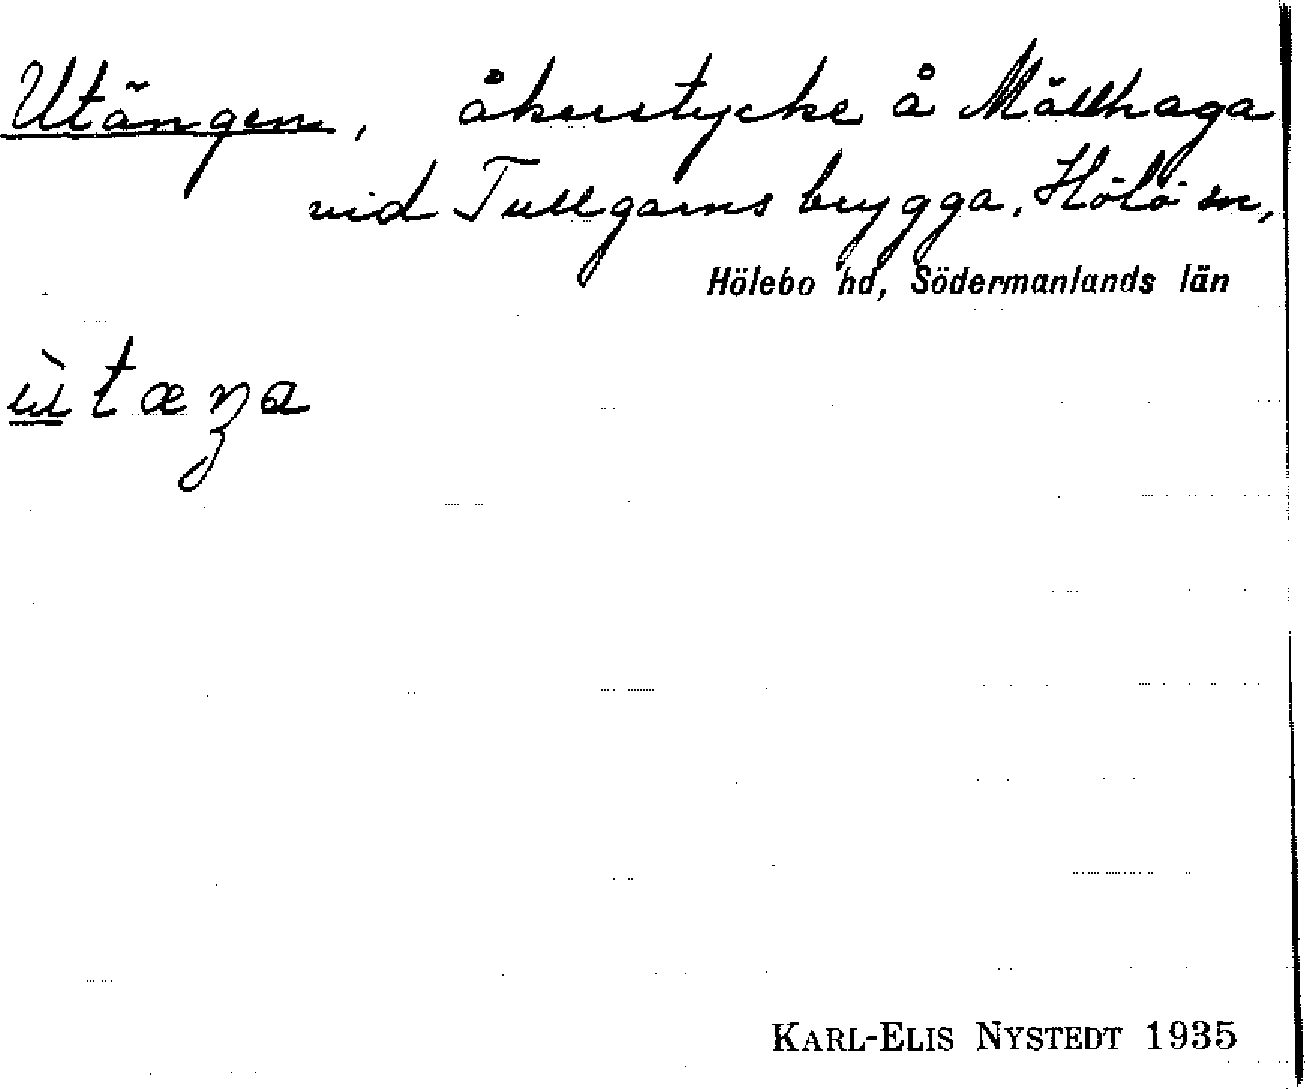 Utängen, åkerstycke å Mällhaga
vid Tullgarns brygga, Hölö sn,
Hölebo hd, Södermanlands län
ùtæŋa
KARL-ELIS NYSTEDT 1935